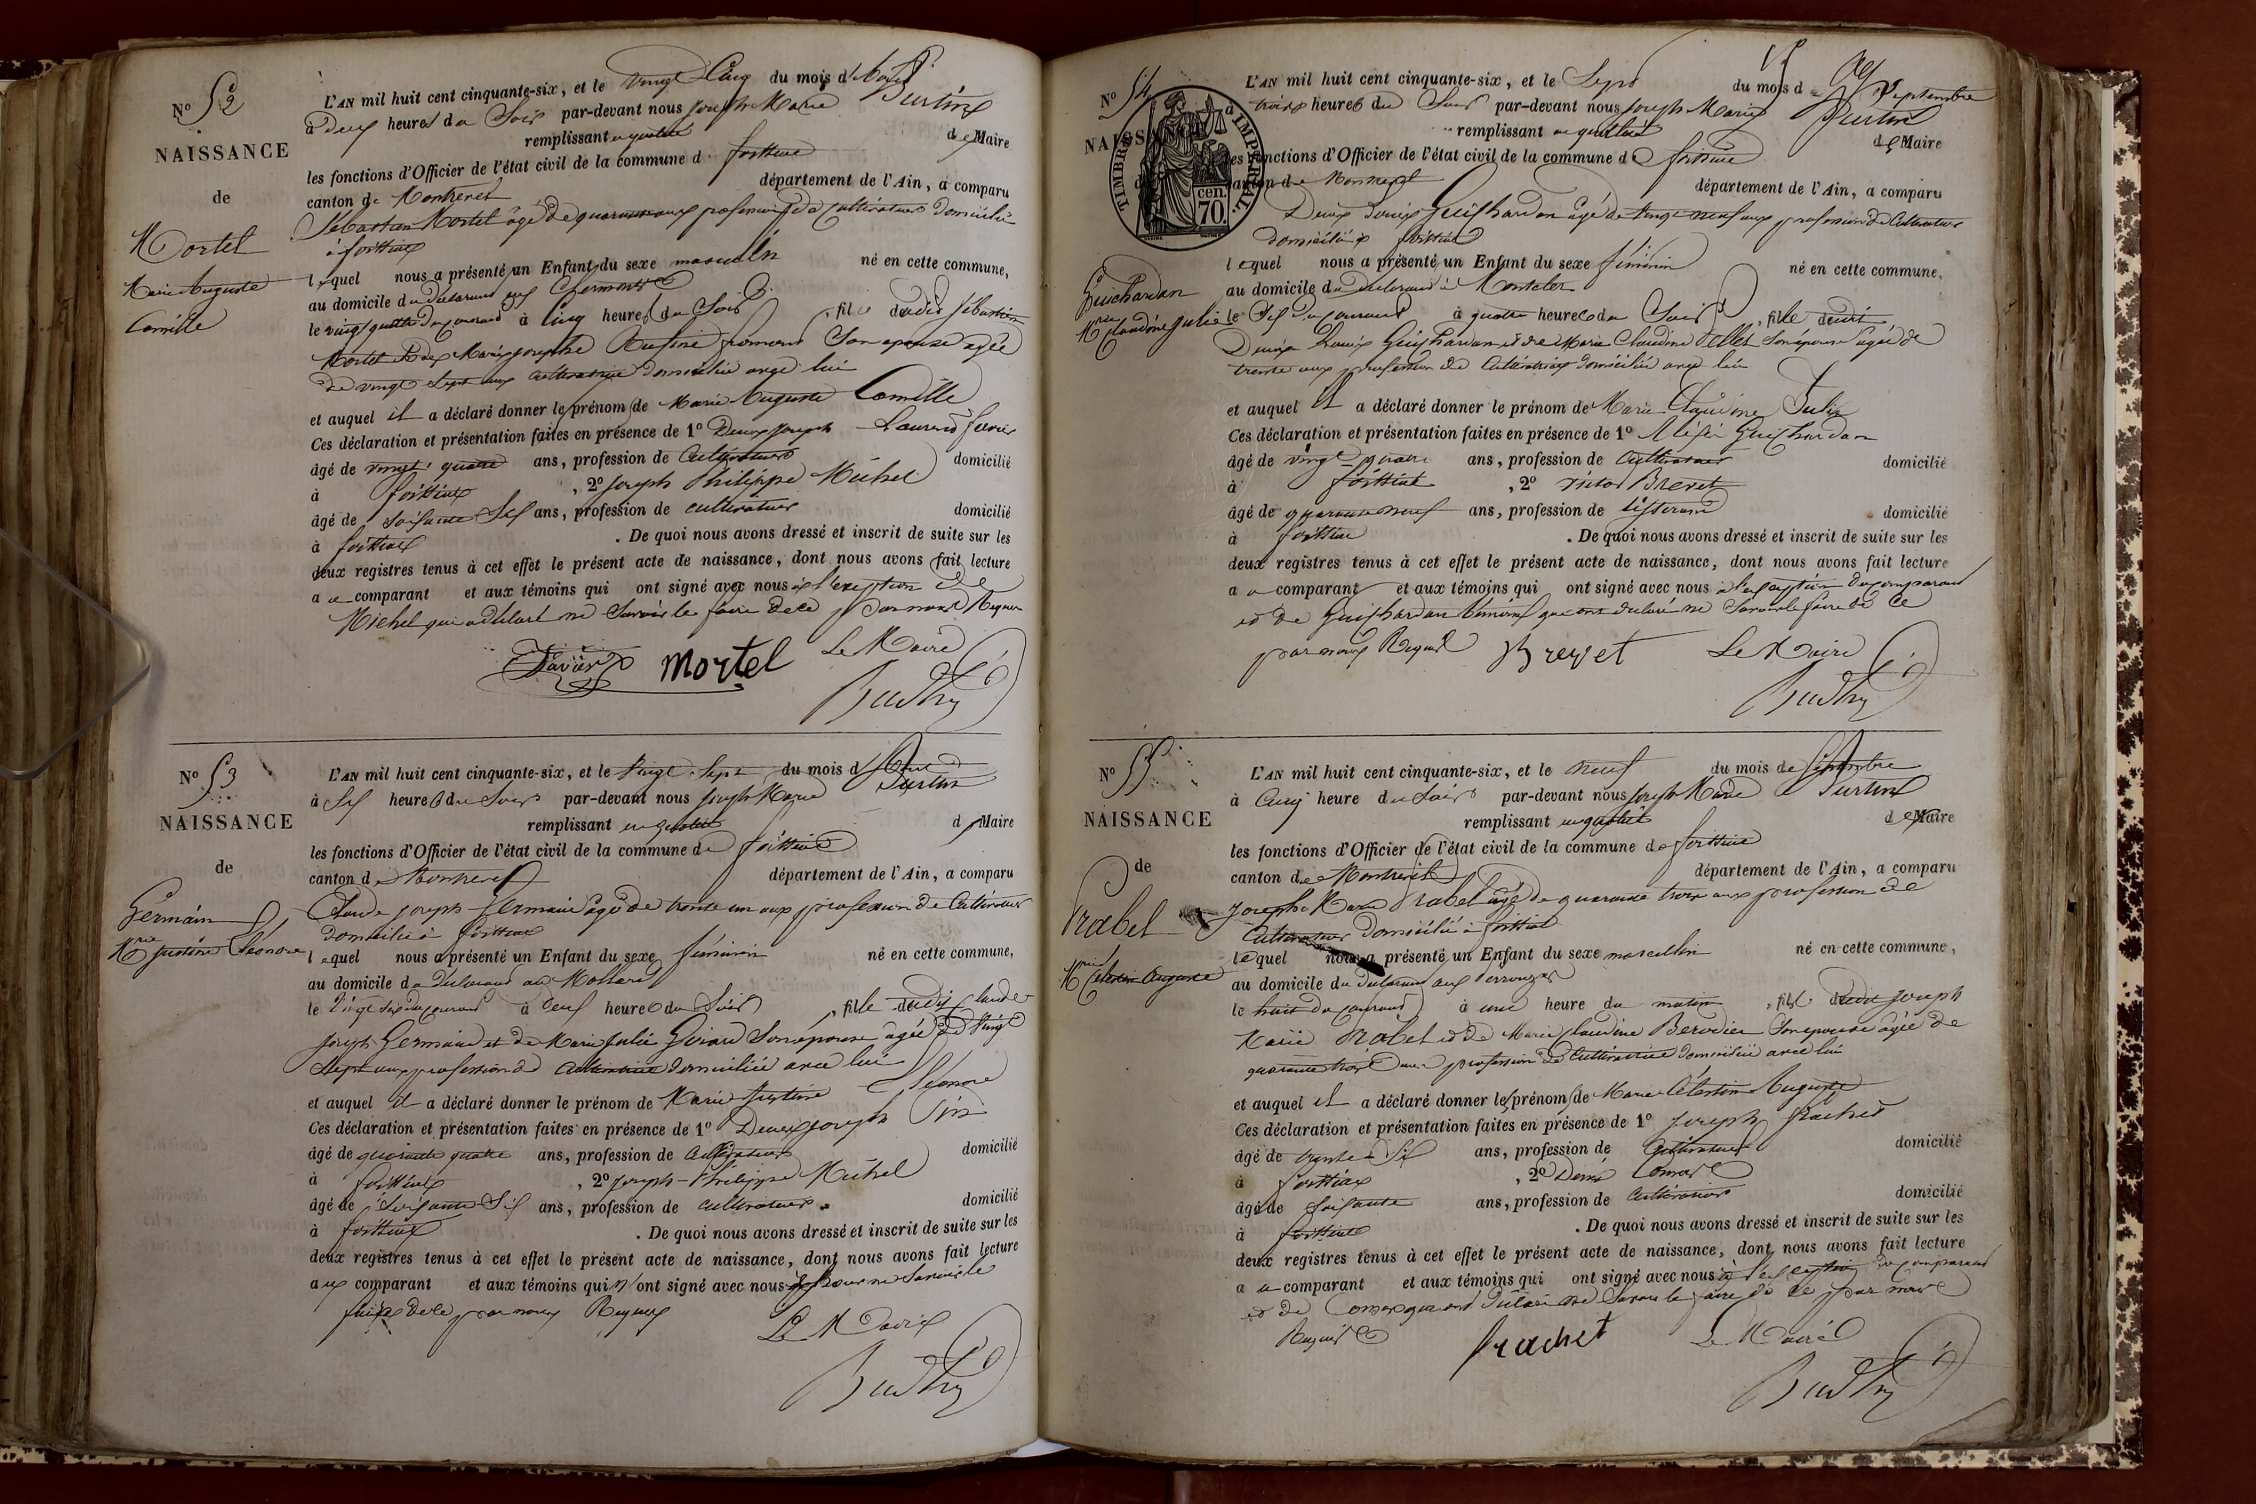 N° 52
NAISSANCE
de
Mortel
Marie Auguste
Camille
L'AN mil huit cent cinquante-six, et le vingt Cinq du mois d'Août
à Deux heures du Soir par-devant nous Joseph Marie Burtin
remplissant en qualité de Maire
les fonctions d'Officier de l'état civil de la commune de
canton de Montrevel département de l'Ain, a comparu
Sébastien Mortel âgé de quarante ans profession de Cultivateur domicilié
à
lequel nous a présenté un Enfant du sexe masculin né en cette commune,
au domicile du Déclarant
le vingt quatre du courant à Cinq heures du Soir, fils dudit Sébastien
Mortel et de Marie Josephe son épouse agée
de vingt Sept ans Cultivatrice domiciliée avec lui
et auquel il a déclaré donner le prénom de Marie Auguste Camille
Ces déclaration et présentation faites en présence de 1° Joseph Laurent
âgé de vingt quatre ans, profession de Cultivateur domicilié
à , 2° Joseph Philippe Michel
âgé de soixante Six ans, profession de cultivateur domicilié
à . De quoi nous avons dressé et inscrit de suite sur les
deux registres tenus à cet effet le présent acte de naissance, dont nous avons fait lecture
au comparant et aux témoins qui ont signé avec nous à l'exeption de
Michel qui a déclaré ne Savoir le faire de ce par nous Requis
Mortel Le Maire
N° 53
NAISSANCE
de
Germain
Mrie Justine Léonore
L'AN mil huit cent cinquante-six, et le Vingt Sept du mois d'Août
à Six heures du Soir par-devant nous Joseph Marie Burtin
remplissant en qualité de Maire
les fonctions d'Officier de l'état civil de la commune de
canton de Montrevel département de l'Ain, a comparu
Claude Joseph Germain âgé de trente un ans profession de Cultivateur
domicilié à
lequel nous a présenté un Enfant du sexe féminin né en cette commune,
au domicile du Déclarant au Mollard
le Vingt Six du courant à heures du Soir, fille dudit Claude
Joseph Germain et de Marie Julie Girard Son épouse âgée de Vingt
Sept ans profession de Cultivatrice domiciliée avec lui
et auquel il a déclaré donner le prénom de Marie Justine Léonore
Ces déclaration et présentation faites en présence de 1° Joseph
âgé de quarante quatre ans, profession de Cultivateur domicilié
à , 2° Joseph-Philippe Michel
âgé de Soixante Six ans, profession de cultivateur domicilié
à . De quoi nous avons dressé et inscrit de suite sur les
deux registres tenus à cet effet le présent acte de naissance, dont nous avons fait lecture
aux comparant et aux témoins qui n'ont signé avec nous pour ne Savoir le
faire de ce par nous Requis
Le Maire
N° 54
NAISSANCE
de
TIMBRE IMPÉRIAL.
70 cen.
Guichardan
Mrie Claudine Julie
L'AN mil huit cent cinquante-six, et le Sept du mois de Septembre
à trois heures du Soir par-devant nous Joseph Marie Burtin
remplissant en qualité de Maire
les fonctions d'Officier de l'état civil de la commune de
canton de Montrevel département de l'Ain, a comparu
Denis Louis Guichardan âgé de Vingt neuf ans profession de Cultivateur
domicilié à
lequel nous a présenté un Enfant du sexe féminin né en cette commune,
au domicile du déclarant à
le Six du courant à quatre heures du Soir, fille dudit
Denis Louis Guichardan et de Marie Claudine Vellet Son épouse âgée de
trente ans profession de Cultivatrice domiciliée avec lui
et auquel il a déclaré donner le prénom de Marie Claudine Julie
Ces déclaration et présentation faites en présence de 1° Guichardan
âgé de vingt-quatre ans, profession de Cultivateur domicilié
à , 2° Victor Brevet
âgé de quarante neuf ans, profession de tisserand domicilié
à . De quoi nous avons dressé et inscrit de suite sur les
deux registres tenus à cet effet le présent acte de naissance, dont nous avons fait lecture
au comparant et aux témoins qui ont signé avec nous à l'exeption du comparant
et de Guichardan témoin qui ont déclaré ne Savoir le faire de Ce
par nous Requis Brevet Le Maire
N° 55
NAISSANCE
de
Prabel
Mrie Célestin Auguste
L'AN mil huit cent cinquante-six, et le neuf du mois de Septembre
à Cinq heure du Soir par-devant nous Joseph Marie Burtin
remplissant en qualité de Maire
les fonctions d'Officier de l'état civil de la commune de
canton de Montrevel département de l'Ain, a comparu
Joseph Marie Prabel âgé de quarante trois ans profession de
Cultivateur domicilié à
lequel nous a présenté un Enfant du sexe masculin né en cette commune,
au domicile du Déclarant aux
le huit du courant à une heure du matin, fils dudit Joseph
Marie Prabel et de Marie Claudine Berodier Son épouse âgée de
quarante trois ans profession de Cultivatrice domiciliée avec lui
et auquel il a déclaré donner le prénom de Marie Célestin Auguste
Ces déclaration et présentation faites en présence de 1° Joseph Frachet
âgé de trente Six ans, profession de Cultivateur domicilié
à , 2° Denis
âgé de Soixante ans, profession de Cultivateur domicilié
à . De quoi nous avons dressé et inscrit de suite sur les
deux registres tenus à cet effet le présent acte de naissance, dont nous avons fait lecture
au comparant et aux témoins qui ont signé avec nous à l'exception du comparant
et de qui ont Déclaré ne Savoir le faire de ce par nous
Requis frachet Le Maire